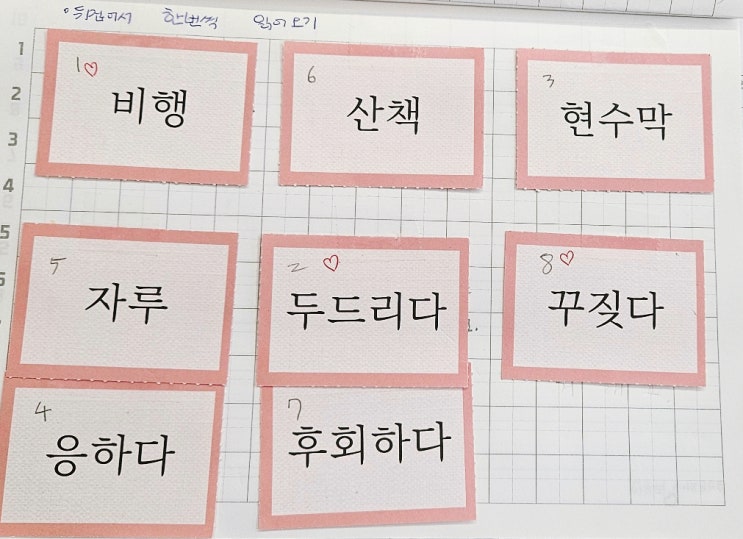 뒤집어서 한번씩 읽어보기
1 2 3 4 5 6
1♡ 비행
6 산책
3 현수막
5 자루
2 ♡ 두드리다
8♡ 꾸짖다
4 응하다
7 후회하다